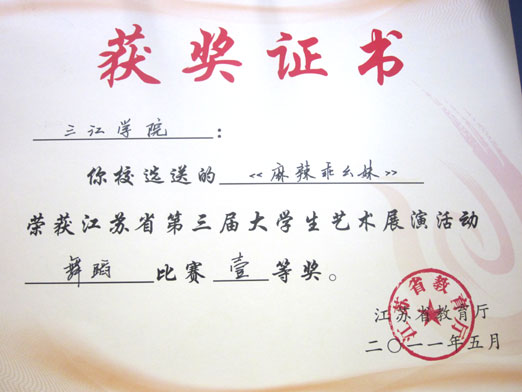 获奖证书
三江学院：
你校选送的《麻辣乖幺妹》
荣获江苏省第三届大学生艺术展演活动
舞蹈比赛壹等奖。
江苏省教育厅
二〇一一年五月
江苏省教育厅